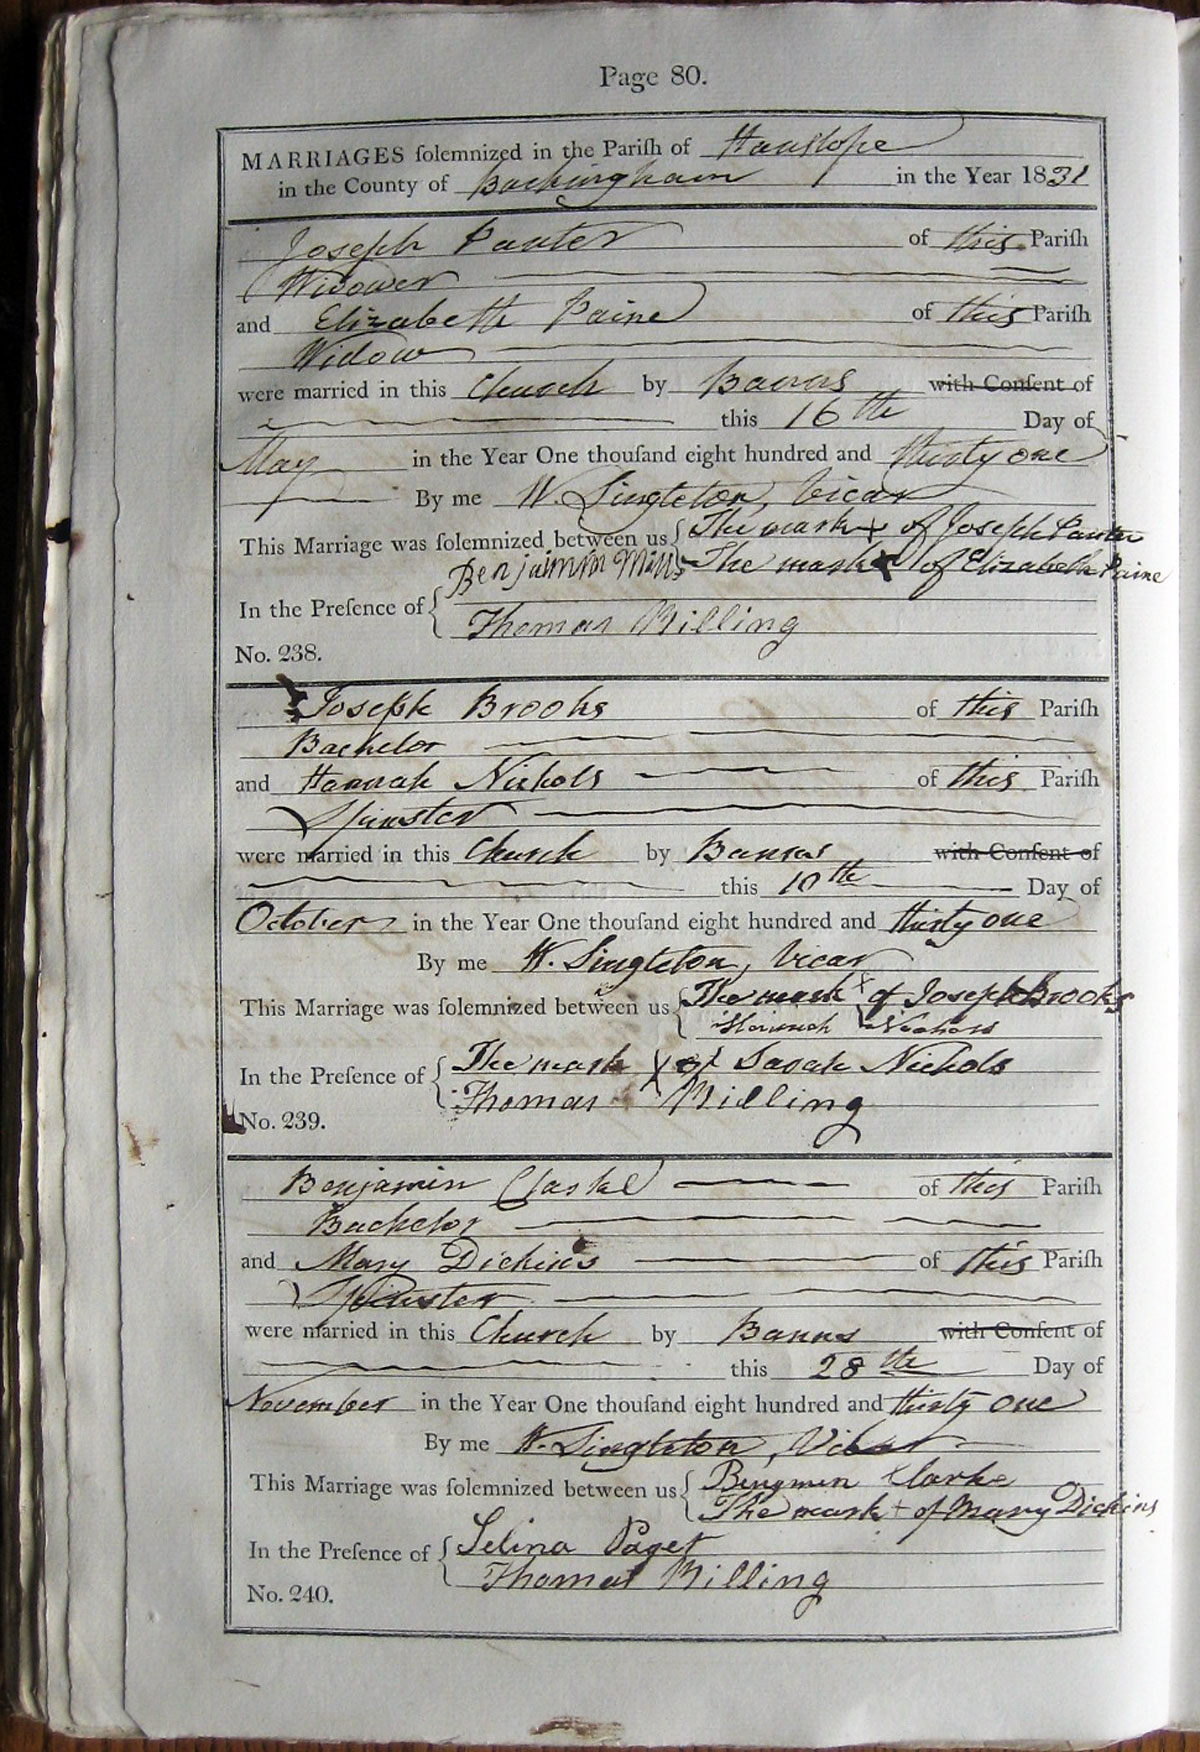 Page 80.
MARRIAGES ſolemnized in the Pariſh of Hanslope
in the County of Buckingham in the Year 1831
Joseph Panter of this Pariſh
Widower
and Elizabeth Paine of this Pariſh
Widow
were married in this Church by Banns with Conſent of
this 16th Day of
May in the Year One thouſand eight hundred and thirty one
By me W. Singleton, Vicar
This Marriage was ſolemnized between us The mark + of Joseph Panter
Benjaimin Mills The mark x of Elizabeth Paine
In the Preſence of
Thomas Billing
No. 238.
Joseph Brooks of this Pariſh
Bachelor
and Hannah Nichols of this Pariſh
Spinster
were married in this Church by Banns with Conſent of
this 10th Day of
October in the Year One thouſand eight hundred and thirty one
By me W. Singleton, Vicar
This Marriage was ſolemnized between us The mark x of Joseph Brooks
Nichols
In the Preſence of The mark X of Sarah Nichols
Thomas Billing
No. 239.
Benjamin Clarke of this Pariſh
Bachelor
and Mary Dickins of this Pariſh
Spinster
were married in this Church by Banns with Conſent of
this 28th Day of
November in the Year One thouſand eight hundred and thirty one
By me W. Singleton, Vicar
This Marriage was ſolemnized between us Bengmen Clarke
The mark + of Mary Dickins
In the Preſence of Selina Paget
Thomas Billing
No. 240.